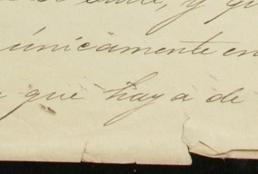 y
únicamente en
que haya de